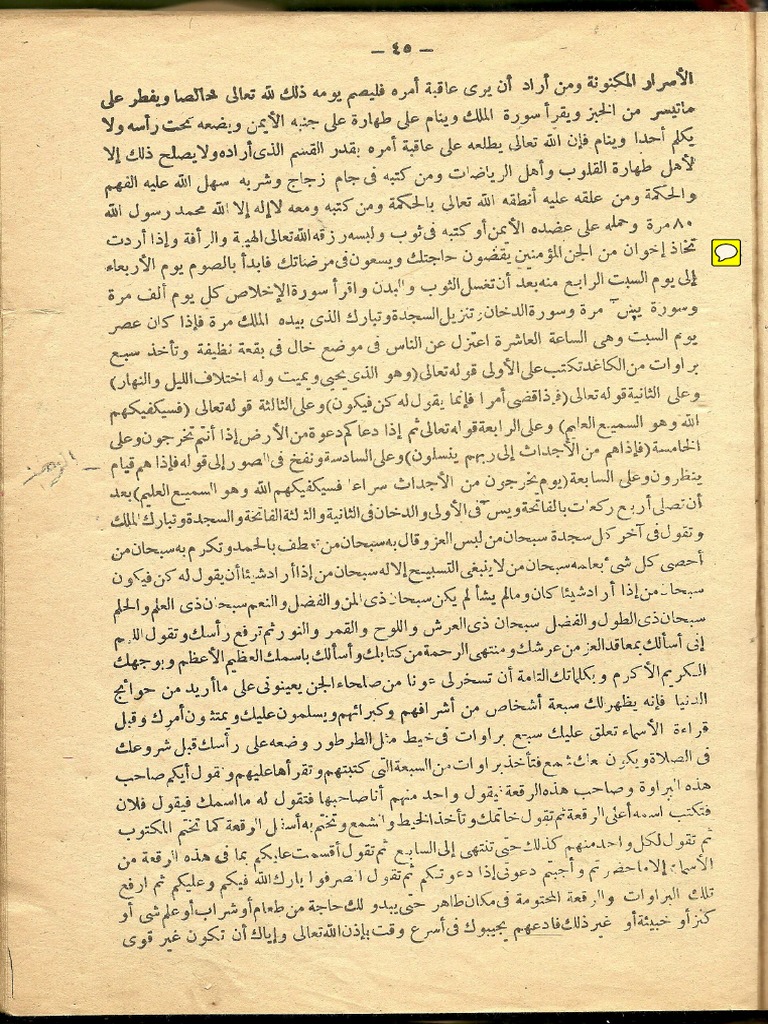 — ٤٥ —
الأسرار المكنونة ومن أراد أن يرى عاقبة أمره فليصم يومه ذلك لله تعالى خالصا ويفطر على
ماتيسر من الخبز ويقرأ سورة الملك وينام على طهارة على جنبه الأيمن ويضعه تحت رأسه ولا
يكلم أحدا وينام فإن الله تعالى يطلعه على عاقبة أمره بقدر القسم الذى أراده ولا يصلح ذلك إلا
لأهل طهارة القلوب وأهل الرياضات ومن كتبه فى جام زجاج وشربه سهل الله عليه الفهم
والحكمة ومن علقه عليه أنطقه الله تعالى بالحكمة ومن كتبه ومعه لاإله إلا الله محمد رسول الله
٨٠ مرة وحمله على عضده الأيمن أو كتبه فى ثوب ولبسه رزقه الله تعالى الهيبة والرأفة وإذا أردت
تخاذ إخوان من الجن المؤمنين يقضون حاجتك ويسعون فى مرضاتك فابدأ بالصوم يوم الأربعاء
إلى يوم السبت الرابع منه بعد أن تغسل الثوب والبدن واقرأ سورة الإخلاص كل يوم ألف مرة
وسورة يس مرة وسورة الدخان وتنزيل السجدة وتبارك الذى بيده الملك مرة فإذا كان عصر
يوم السبت وهى الساعة العاشرة اعتزل عن الناس فى موضع خال فى بقعة نظيفة وتأخذ سبع
براوات من الكاغد تكتب على الأولى قوله تعالى (وهو الذى يحيى ويميت وله اختلاف الليل والنهار)
وعلى الثانية قوله تعالى (فإذا قضى أمرا فإنما يقول له كن فيكون) وعلى الثالثة قوله تعالى (فسيكفيكهم
الله وهو السميع العليم) وعلى الرابعة قوله تعالى ثم إذا دعاكم دعوة من الأرض إذا أنتم تخرجون وعلى
الخامسة (فإذا هم من الأجداث إلى ربهم ينسلون) وعلى السادسة ونفخ فى الصور إلى قوله فإذا هم قيام
ينظرون وعلى السابعة (يوم يخرجون من الأجداث سراعا فسيكفيكهم الله وهو السميع العليم) بعد
أن تصلى أربع ركعات بالفاتحة ويس فى الأولى والدخان فى الثانية والثالثة الفاتحة والسجدة وتبارك الملك
وتقول فى آخر كل سجدة سبحان من لبس العز وقال به سبحان من تعطف بالحمد وتكرم به سبحان من
أحصى كل شئ بعلمه سبحان من لا ينبغى التسبيح إلا له سبحان من إذا أراد شيئا أن يقول له كن فيكون
سبحان من إذا أراد شيئا كان ومالم يشأ لم يكن سبحان ذى المن والفضل والنعم سبحان ذى العلم والحلم
سبحان ذى الطول والفضل سبحان ذى العرش واللوح والقمر والنور ثم ترفع رأسك وتقول اللهم
إنى أسألك بمعاقد العز من عرشك ومنتهى الرحمة من كتابك وأسألك باسمك العظيم الأعظم وبوجهك
الكريم الأكرم وبكلماتك التامة أن تسخر لى عونا من صلحاء الجن يعينونى على ماأريد من حوائج
الدنيا فإنه يظهر لك سبعة أشخاص من أشرافهم وكبرائهم ويسلمون عليك ويمتثلون أمرك وقبل
قراءة الأسماء تعلق عليك سبع براوات فى خيط مثل الطرطور وضعه على رأسك قبل شروعك
فى الصلاة ويكون معك شمع فتأخذ براوات من السبعة التى كتبتهم وتقرأها عليهم وتقول أيكم صاحب
هذه البراوة وصاحب هذه الرقعة يقول واحد منهم أنا صاحبها فتقول له مااسمك فيقول فلان
فتكتب اسمه أعلى الرقعة ثم تقول خاتمك وتأخذ الخيط والشمع وتختم به أسفل الرقعة كما تختم المكتوب
ثم تقول لكل واحد منهم كذلك حتى تنتهى إلى السابع ثم تقول أقسمت عليكم بما فى هذه الرقعة من
الأسماء إلا ماحضرتم وأجبتم دعوتى إذا دعوتكم ثم تقول انصرفوا بارك الله فيكم وعليكم ثم ارفع
تلك البراوات والرقعة المختومة فى مكان طاهر حتى يبدو لك حاجة من طعام أو شراب أو علم شى أو
كنز أو خبيئة أو غير ذلك فادعهم يجيبوك فى أسرع وقت بإذن الله تعالى وإياك أن تكون غير قوى